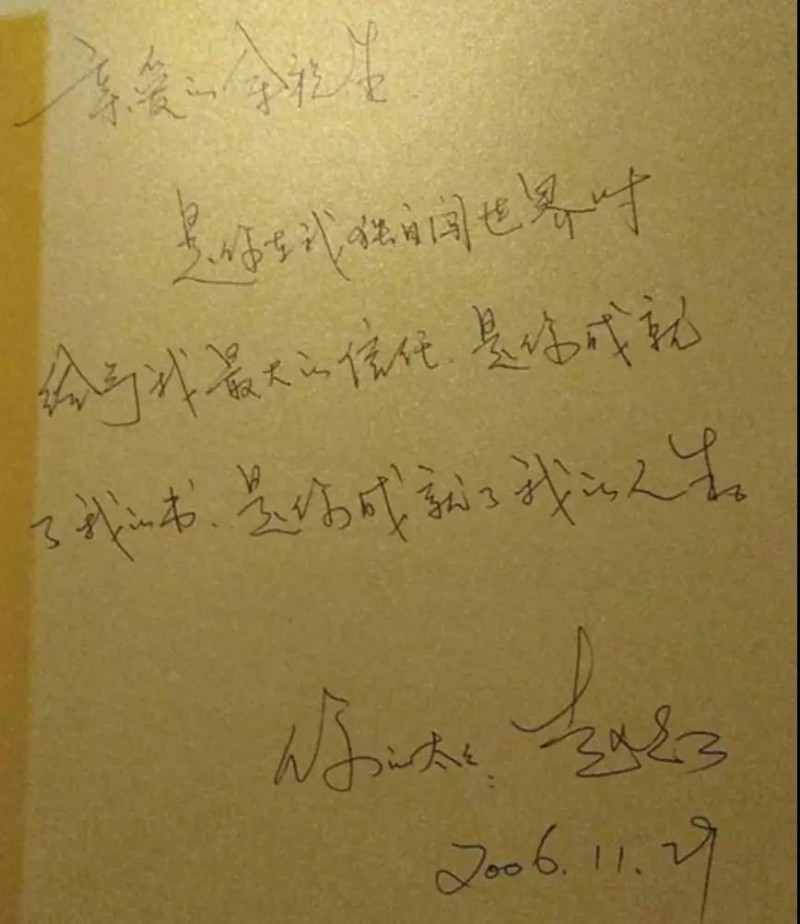 亲爱的余生
是你在我独自闯世界时
给予我最大的信任、是你成就
了我的书、是你成就了我的人生。
你的太太: 赵红
2006.11.29